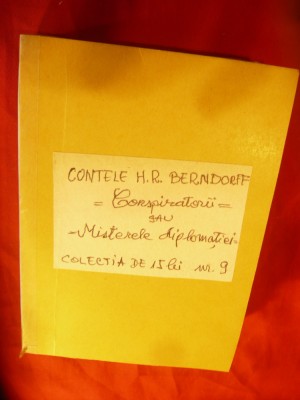 CONTELE H.R. BERNDORFF
= Conspiratorii =
SAU
- Misterele diplomației -
COLECTIA DE 15 lei nr. 9